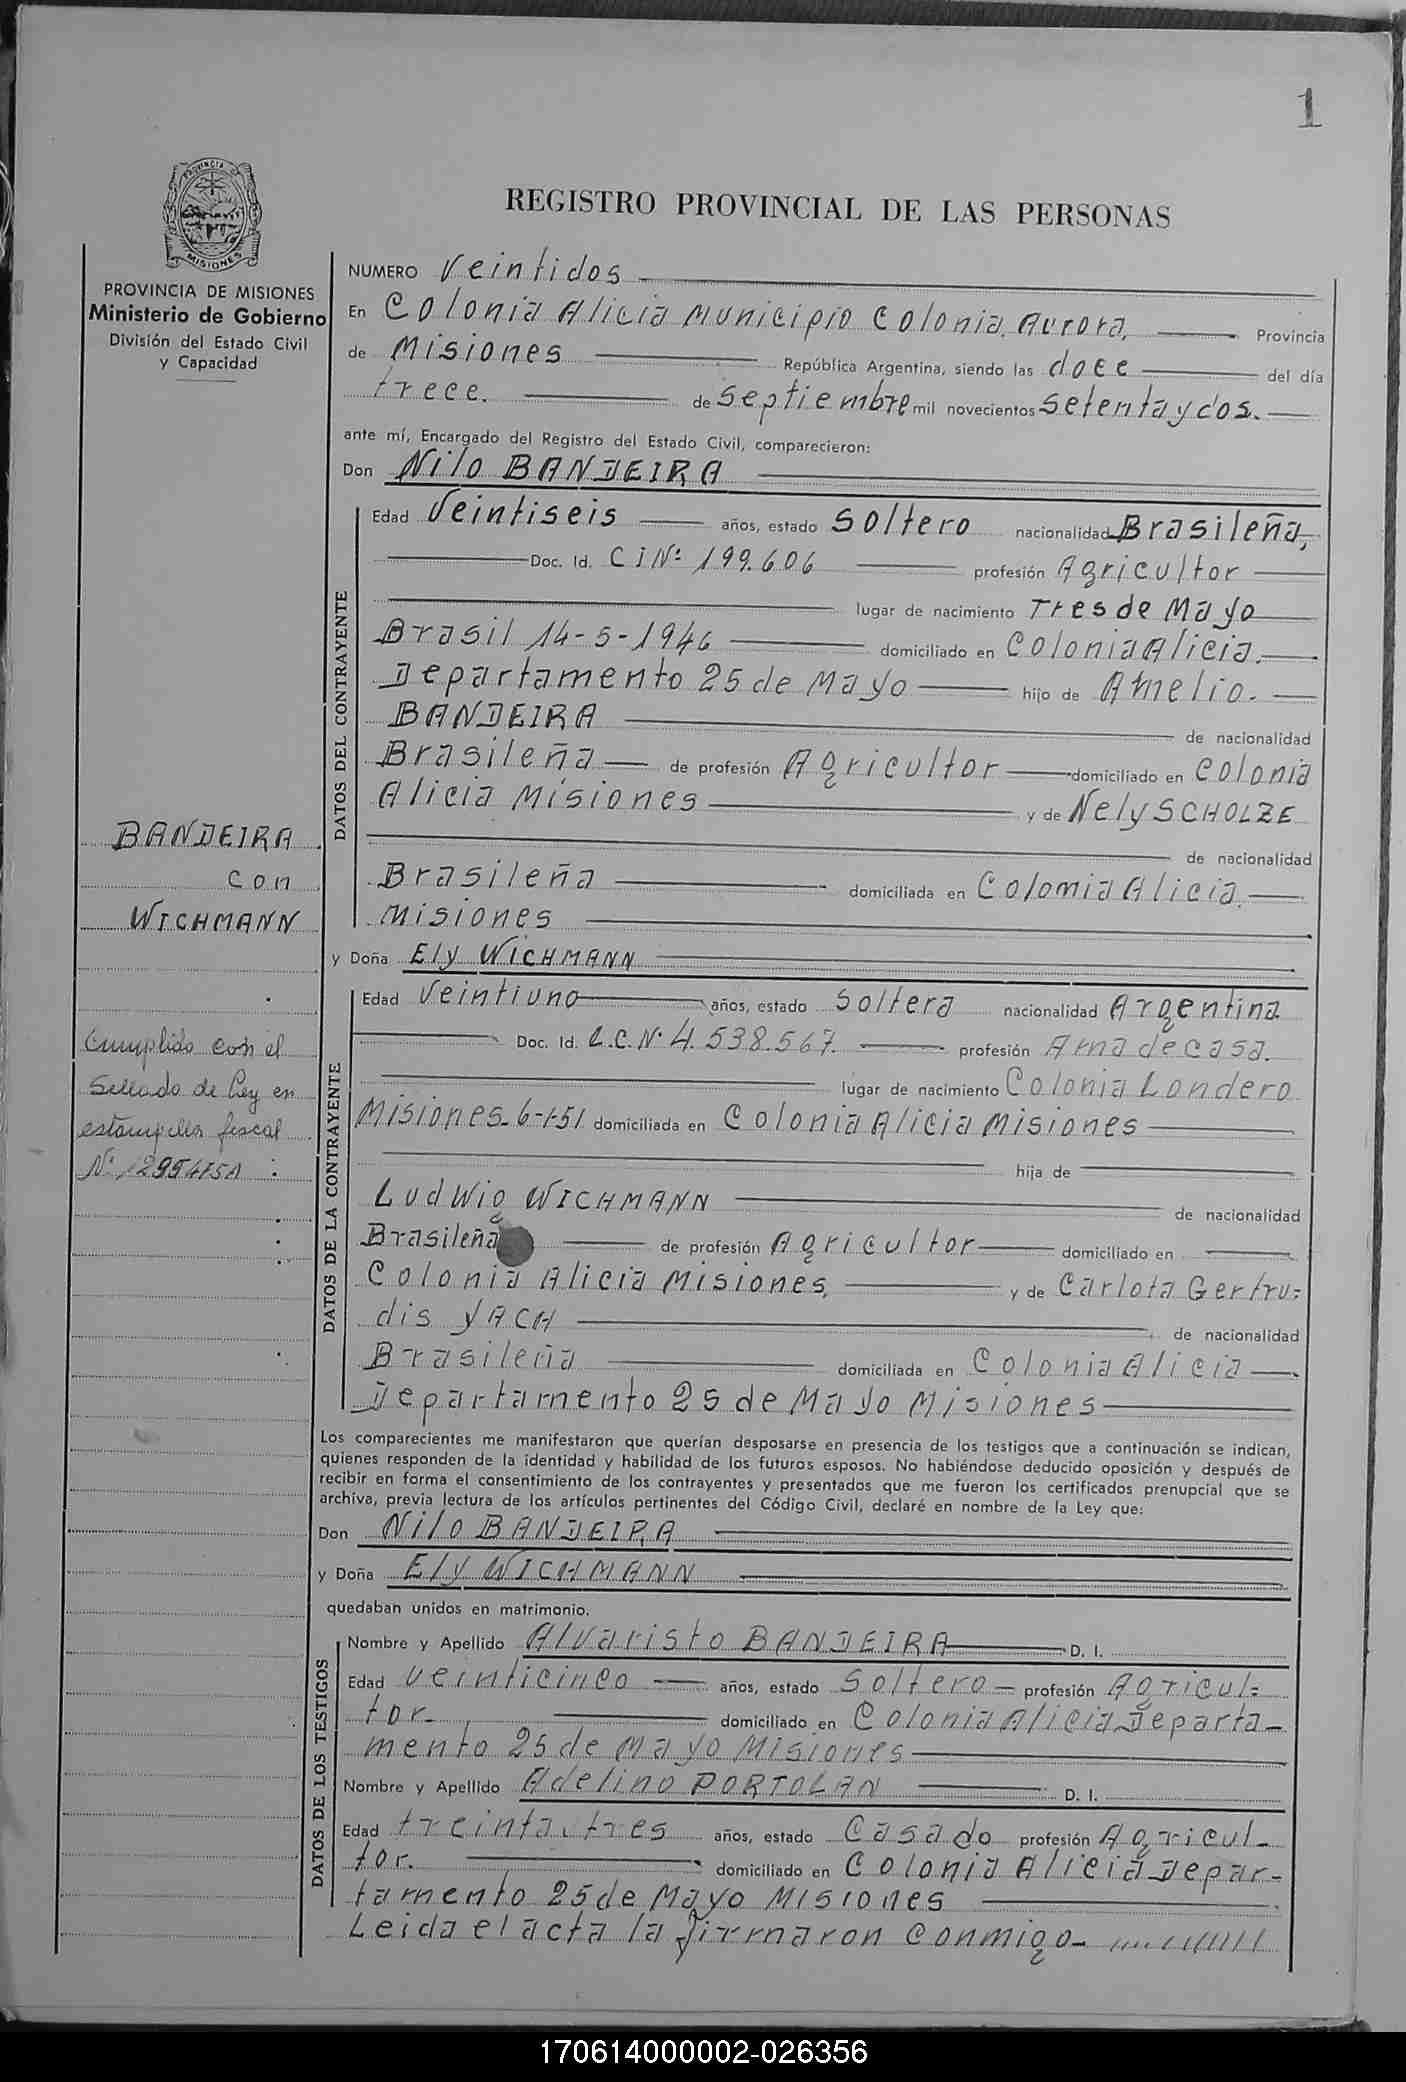 1
PROVINCIA
MISIONES
REGISTRO PROVINCIAL DE LAS PERSONAS
PROVINCIA DE MISIONES
Ministerio de Gobierno
División del Estado Civil
y Capacidad
NUMERO Veintidos
En Colonia Alicia Municipio Colonia Aurora, Provincia
de Misiones República Argentina, siendo las doce del día
trece. de Septiembre mil novecientos setenta y dos.
ante mí, Encargado del Registro del Estado Civil, comparecieron:
Don Nilo BANDEIRA
DATOS DEL CONTRAYENTE
Edad Veintiseis años, estado Soltero nacionalidad Brasileña,
Doc. Id. C.I Nº 199.606 profesión Agricultor
lugar de nacimiento Tres de Mayo
Brasil 14-5-1946 domiciliado en Colonia Alicia.
Departamento 25 de Mayo hijo de Amelio.
BANDEIRA de nacionalidad
Brasileña de profesión Agricultor domiciliado en Colonia
Alicia Misiones y de Nely SCHOLZE
de nacionalidad
Brasileña domiciliada en Colomia Alicia.
Misiones
BANDEIRA
con
WICHMANN
y Doña Ely WICHMANN
DATOS DE LA CONTRAYENTE
Edad Veintiuno años, estado Soltera nacionalidad Argentina
Doc. Id. L.C.Nº 4.538.567. profesión Ama de casa.
lugar de nacimiento Colonia Londero
Misiones. 6-1-51 domiciliada en Colonia Alicia Misiones
hija de
Ludwig WICHMANN de nacionalidad
Brasileña de profesión Agricultor domiciliado en
Colonia Alicia Misiones, y de Carlota Gertru=
dis YACH de nacionalidad
Brasileña domiciliada en Colonia Alicia
Departamento 25 de Mayo Misiones
Cumplido con el
Sellado de Ley en
estampilla fiscal
Nº
Los comparecientes me manifestaron que querían desposarse en presencia de los testigos que a continuación se indican,
quienes responden de la identidad y habilidad de los futuros esposos. No habiéndose deducido oposición y después de
recibir en forma el consentimiento de los contrayentes y presentados que me fueron los certificados prenupcial que se
archiva, previa lectura de los artículos pertinentes del Código Civil, declaré en nombre de la Ley que:
Don Nilo BANDEIRA
y Doña Ely WICHMANN
quedaban unidos en matrimonio.
DATOS DE LOS TESTIGOS
Nombre y Apellido Alvaristo BANDEIRA D. I.
Edad veinticinco años, estado Soltero profesión Agricul=
tor. domiciliado en Colonia Alicia Departa-
mento 25 de Mayo Misiones
Nombre y Apellido Adelino PORTOLAN D. I.
Edad treinta y tres años, estado Casado profesión Agricul-
tor. domiciliado en Colonia Alicia Depar-
tamento 25 de Mayo Misiones
Leida el acta la firmaron conmigo-
170614000002-026356